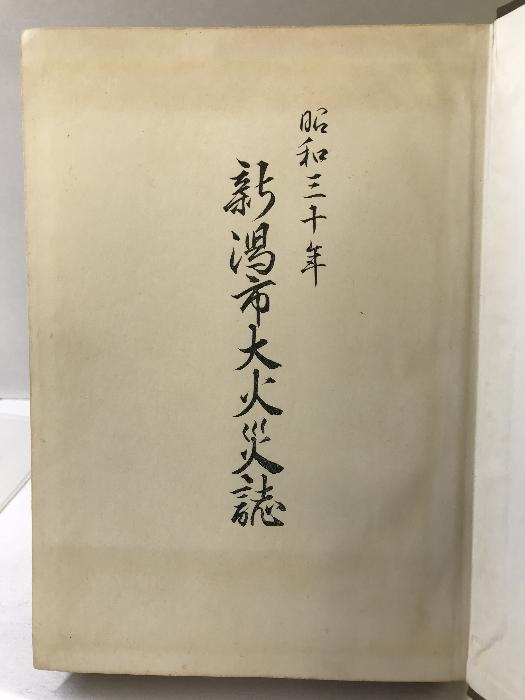 昭和三十年
新潟市大火災誌